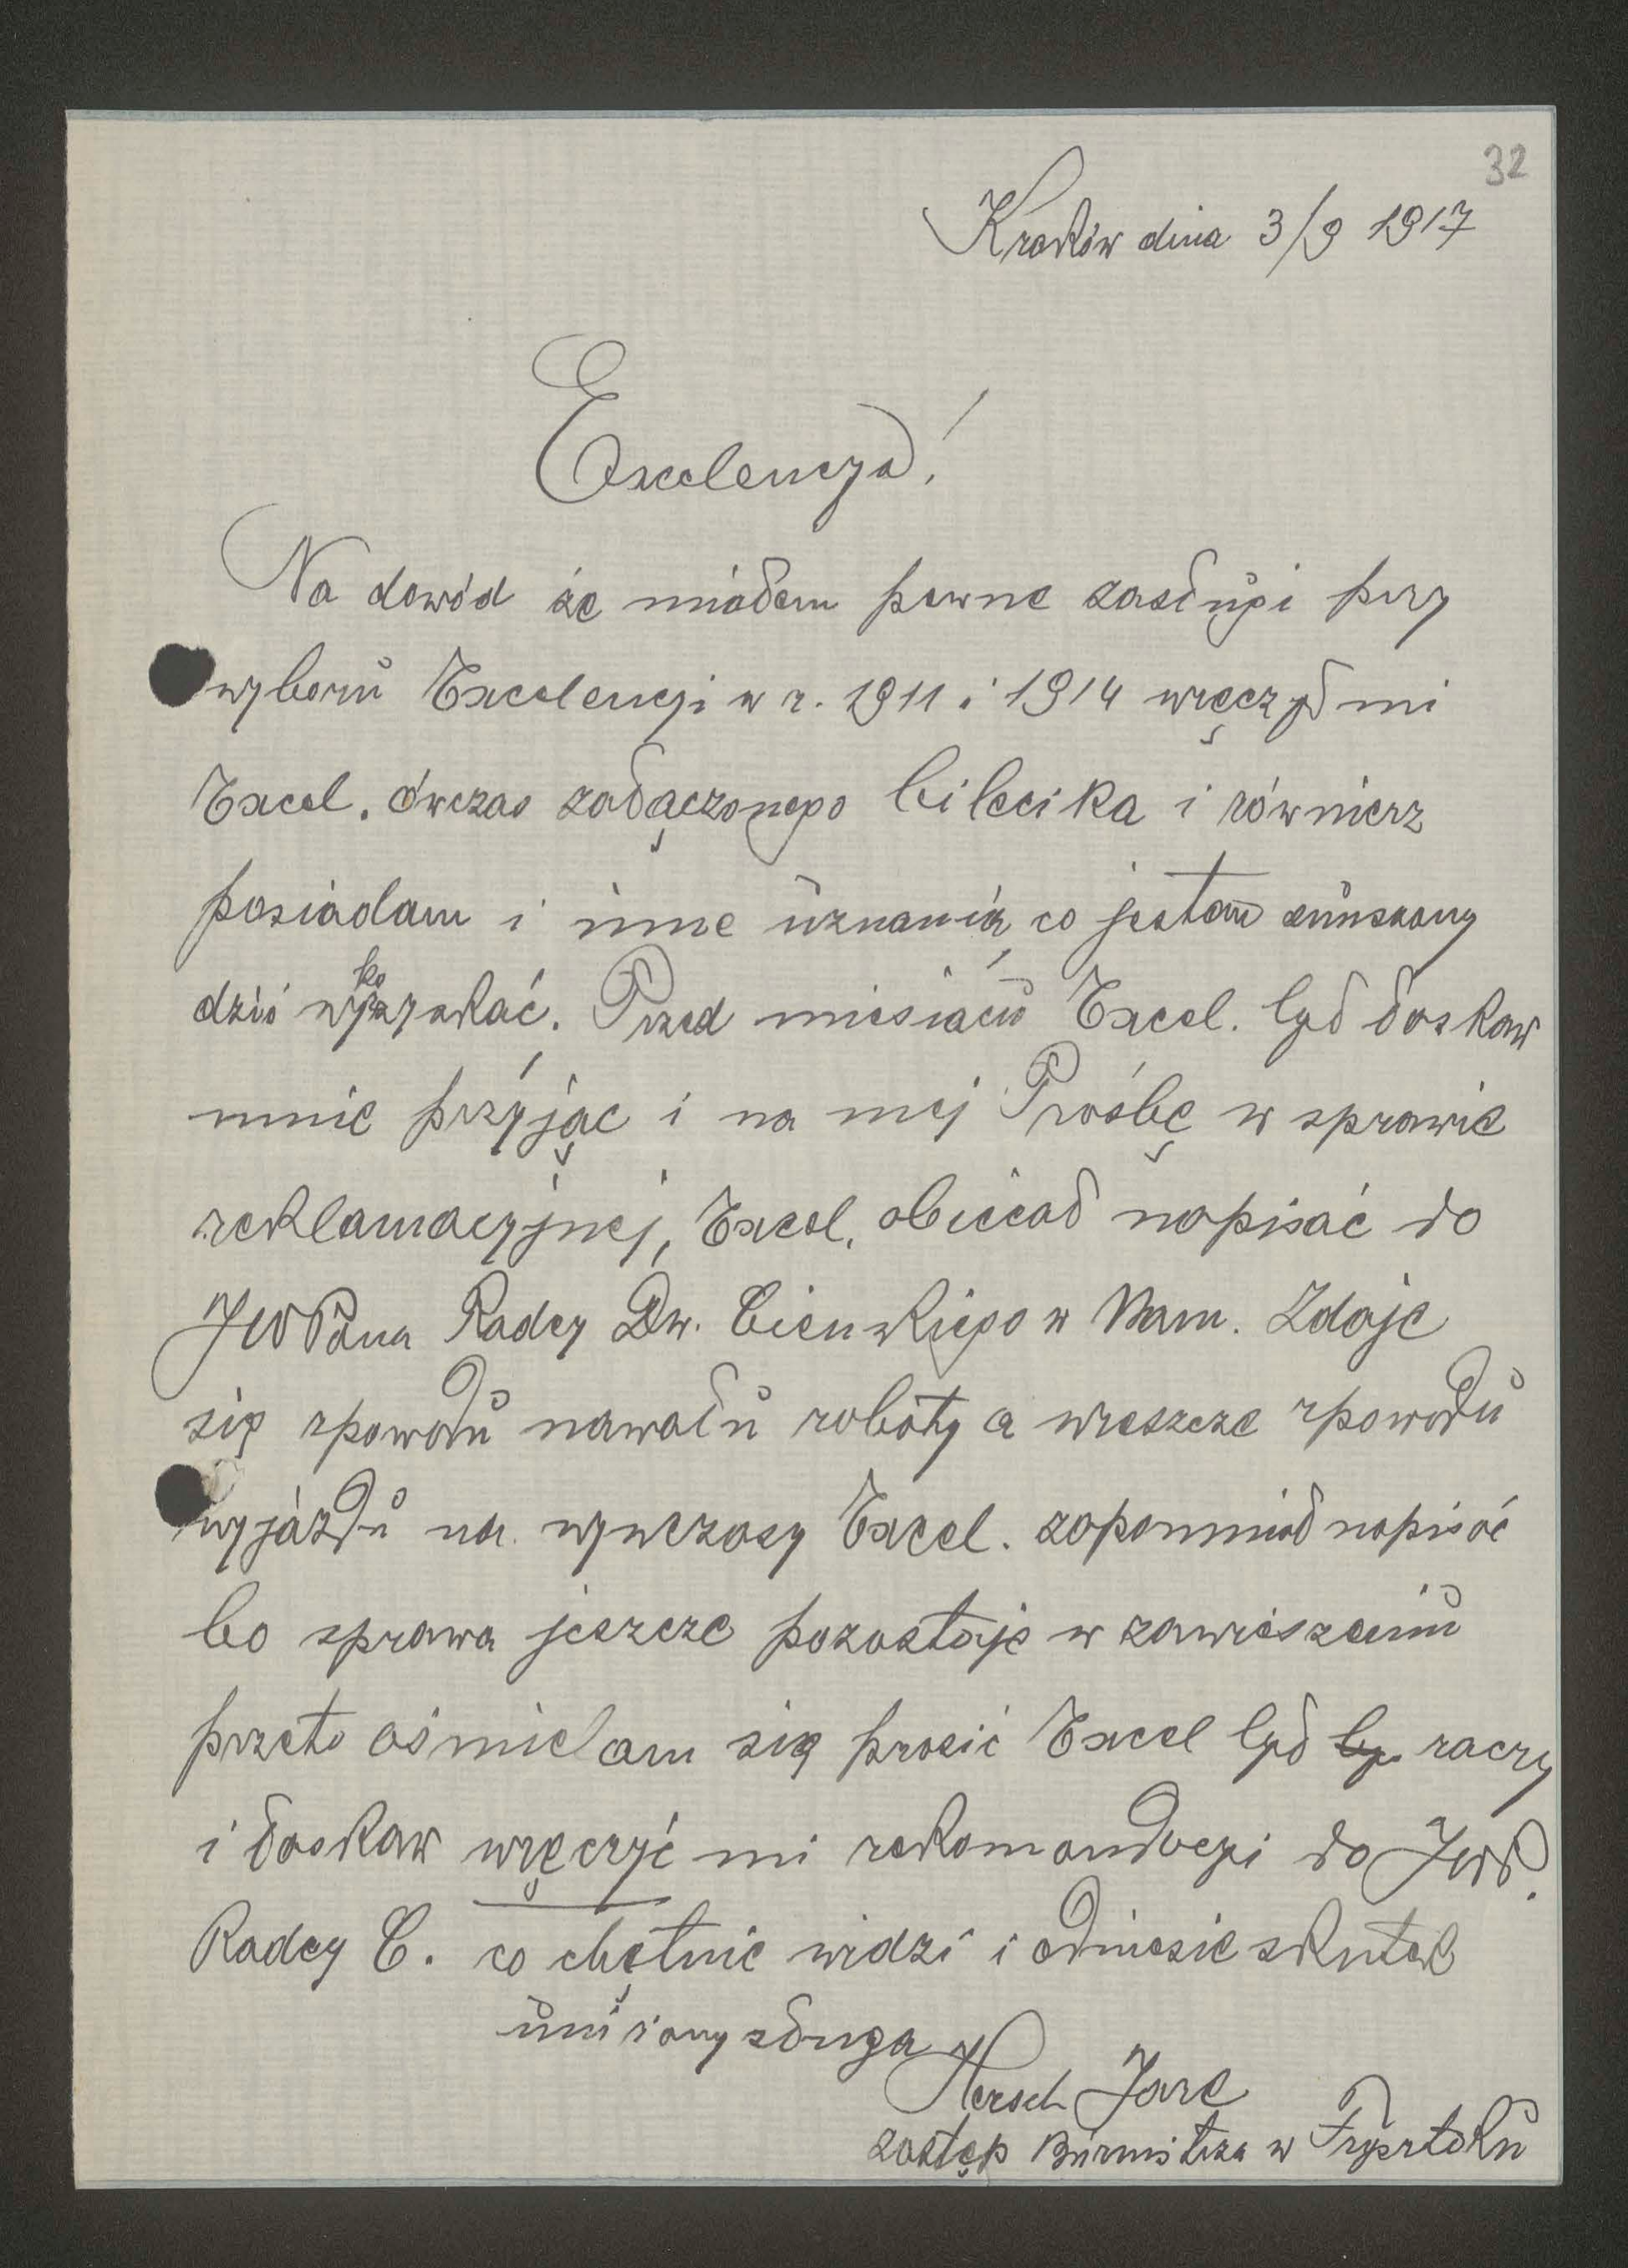 32
Kraków dnia 3/9 1917
Excelencya!
Na dowód że miałem pewne zasługi przy
wyboru Excelencji w r. 1911 i 1914 wręczył mi
Excel. ówczas załączonego bilecika i równierz
posiadam i inne uznania, co jestem zmuszony
dziś wykazać. Przed miesiącu Excel. był łaskaw
mnie przyjąc i na mej Prośbę w sprawie
reklamacyjnej, Excel. obiecał napisać do
JWPana Radcy Dw. Cieńskiego w Nam. Zdaje
się zpowodu nawału roboty a wreszcze zpowodu
wyjazdu na wywczasy Excel. zapomniał napisać
bo sprawa jeszcze pozostaje w zawieszeniu
przeto ośmielam się prosić Excel był by raczy
i łaskaw wręczyć mi rekomandacyi do JWP.
Radcy C. co chętnie widzi i odniesie skutek
uniżony sługa
Hersch Jare
zastęp Burmistrza w Frysztaku